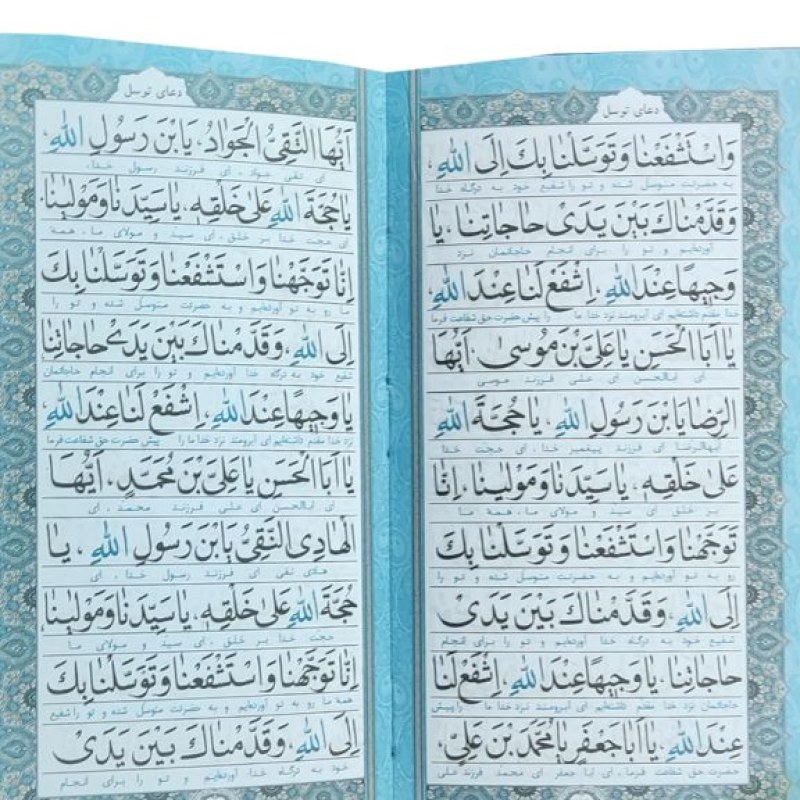 دعای توسل
وَاسْتَشْفَعْنا وَتَوَسَّلْنا بِكَ اِلَى اللهِ،
به حضرتت متوسل شده و تو را شفیع خود به درگاه خدا
وَقَدَّمْناكَ بَيْنَ يَدَىْ حاجاتِنا، يا
آورده‌ایم و تو را برای انجام حاجاتمان نزد
وَجيهًا عِنْدَ اللهِ، اِشْفَعْ لَنا عِنْدَ اللهِ،
خدا مقدم داشته‌ایم ای آبرومند نزد خدا ما را پیش حضرت حق شفاعت فرما
يا اَبَا الْحَسَنِ يا عَلِىَّ بْنَ مُوسى، اَيُّهَا
ای اباالحسن ای علی فرزند موسی
الرِّضا يَا بْنَ رَسُولِ اللهِ، يا حُجَّةَ اللهِ
ایهاالرضا ای فرزند پیغمبر خدا، ای حجت خدا
عَلى خَلْقِهِ، يا سَيِّدَنا وَمَوْلينا، اِنّا
بر خلق ای سید و مولای ما، همه ما
تَوَجَّهْنا وَاسْتَشْفَعْنا وَتَوَسَّلْنا بِكَ
رو به تو آورده‌ایم و به حضرتت متوسل شده و تو را
اِلَى اللهِ، وَقَدَّمْناكَ بَيْنَ يَدَىْ
شفیع خود به درگاه خدا آورده‌ایم و تو را برای انجام
حاجاتِنا، يا وَجيهًا عِنْدَ اللهِ، اِشْفَعْ لَنا
حاجاتمان نزد خدا مقدم داشته‌ایم ای آبرومند نزد خدا ما را پیش
عِنْدَ اللهِ، يا اَبا جَعْفَرٍ يا مُحَمَّدَ بْنَ عَلِىٍّ،
حضرت حق شفاعت فرما، ای ابا جعفر ای محمد فرزند علی
دعای توسل
اَيُّهَا التَّقِىُّ الْجَوادُ، يَا بْنَ رَسُولِ اللهِ،
ای تقی جواد، ای فرزند رسول خدا،
يا حُجَّةَ اللهِ عَلى خَلْقِهِ، يا سَيِّدَنا وَمَوْلينا،
ای حجت خدا بر خلق، ای سید و مولای ما، همه
اِنّا تَوَجَّهْنا وَاسْتَشْفَعْنا وَتَوَسَّلْنا بِكَ
ما رو به تو آورده‌ایم و به حضرتت متوسل شده و تو را
اِلَى اللهِ، وَقَدَّمْناكَ بَيْنَ يَدَىْ حاجاتِنا
شفیع خود به درگاه خدا آورده‌ایم و تو را برای انجام حاجاتمان
يا وَجيهًا عِنْدَ اللهِ، اِشْفَعْ لَنا عِنْدَ اللهِ،
نزد خدا مقدم داشته‌ایم ای آبرومند نزد خدا ما را پیش حضرت حق شفاعت فرما
يا اَبَا الْحَسَنِ يا عَلِىَّ بْنَ مُحَمَّدٍ، اَيُّهَا
ای اباالحسن ای علی فرزند محمد، ای
الْهادِى النَّقِىُّ يَا بْنَ رَسُولِ اللهِ، يا
هادی نقی ای فرزند رسول خدا، ای
حُجَّةَ اللهِ عَلى خَلْقِهِ، يا سَيِّدَنا وَمَوْلينا،
حجت خدا بر خلق، ای سید و مولای ما
اِنّا تَوَجَّهْنا وَاسْتَشْفَعْنا وَتَوَسَّلْنا بِكَ
همه ما رو به تو آورده‌ایم و به حضرتت متوسل شده و تو را شفیع
اِلَى اللهِ، وَقَدَّمْناكَ بَيْنَ يَدَىْ
خود به درگاه خدا آورده‌ایم و تو را برای انجام